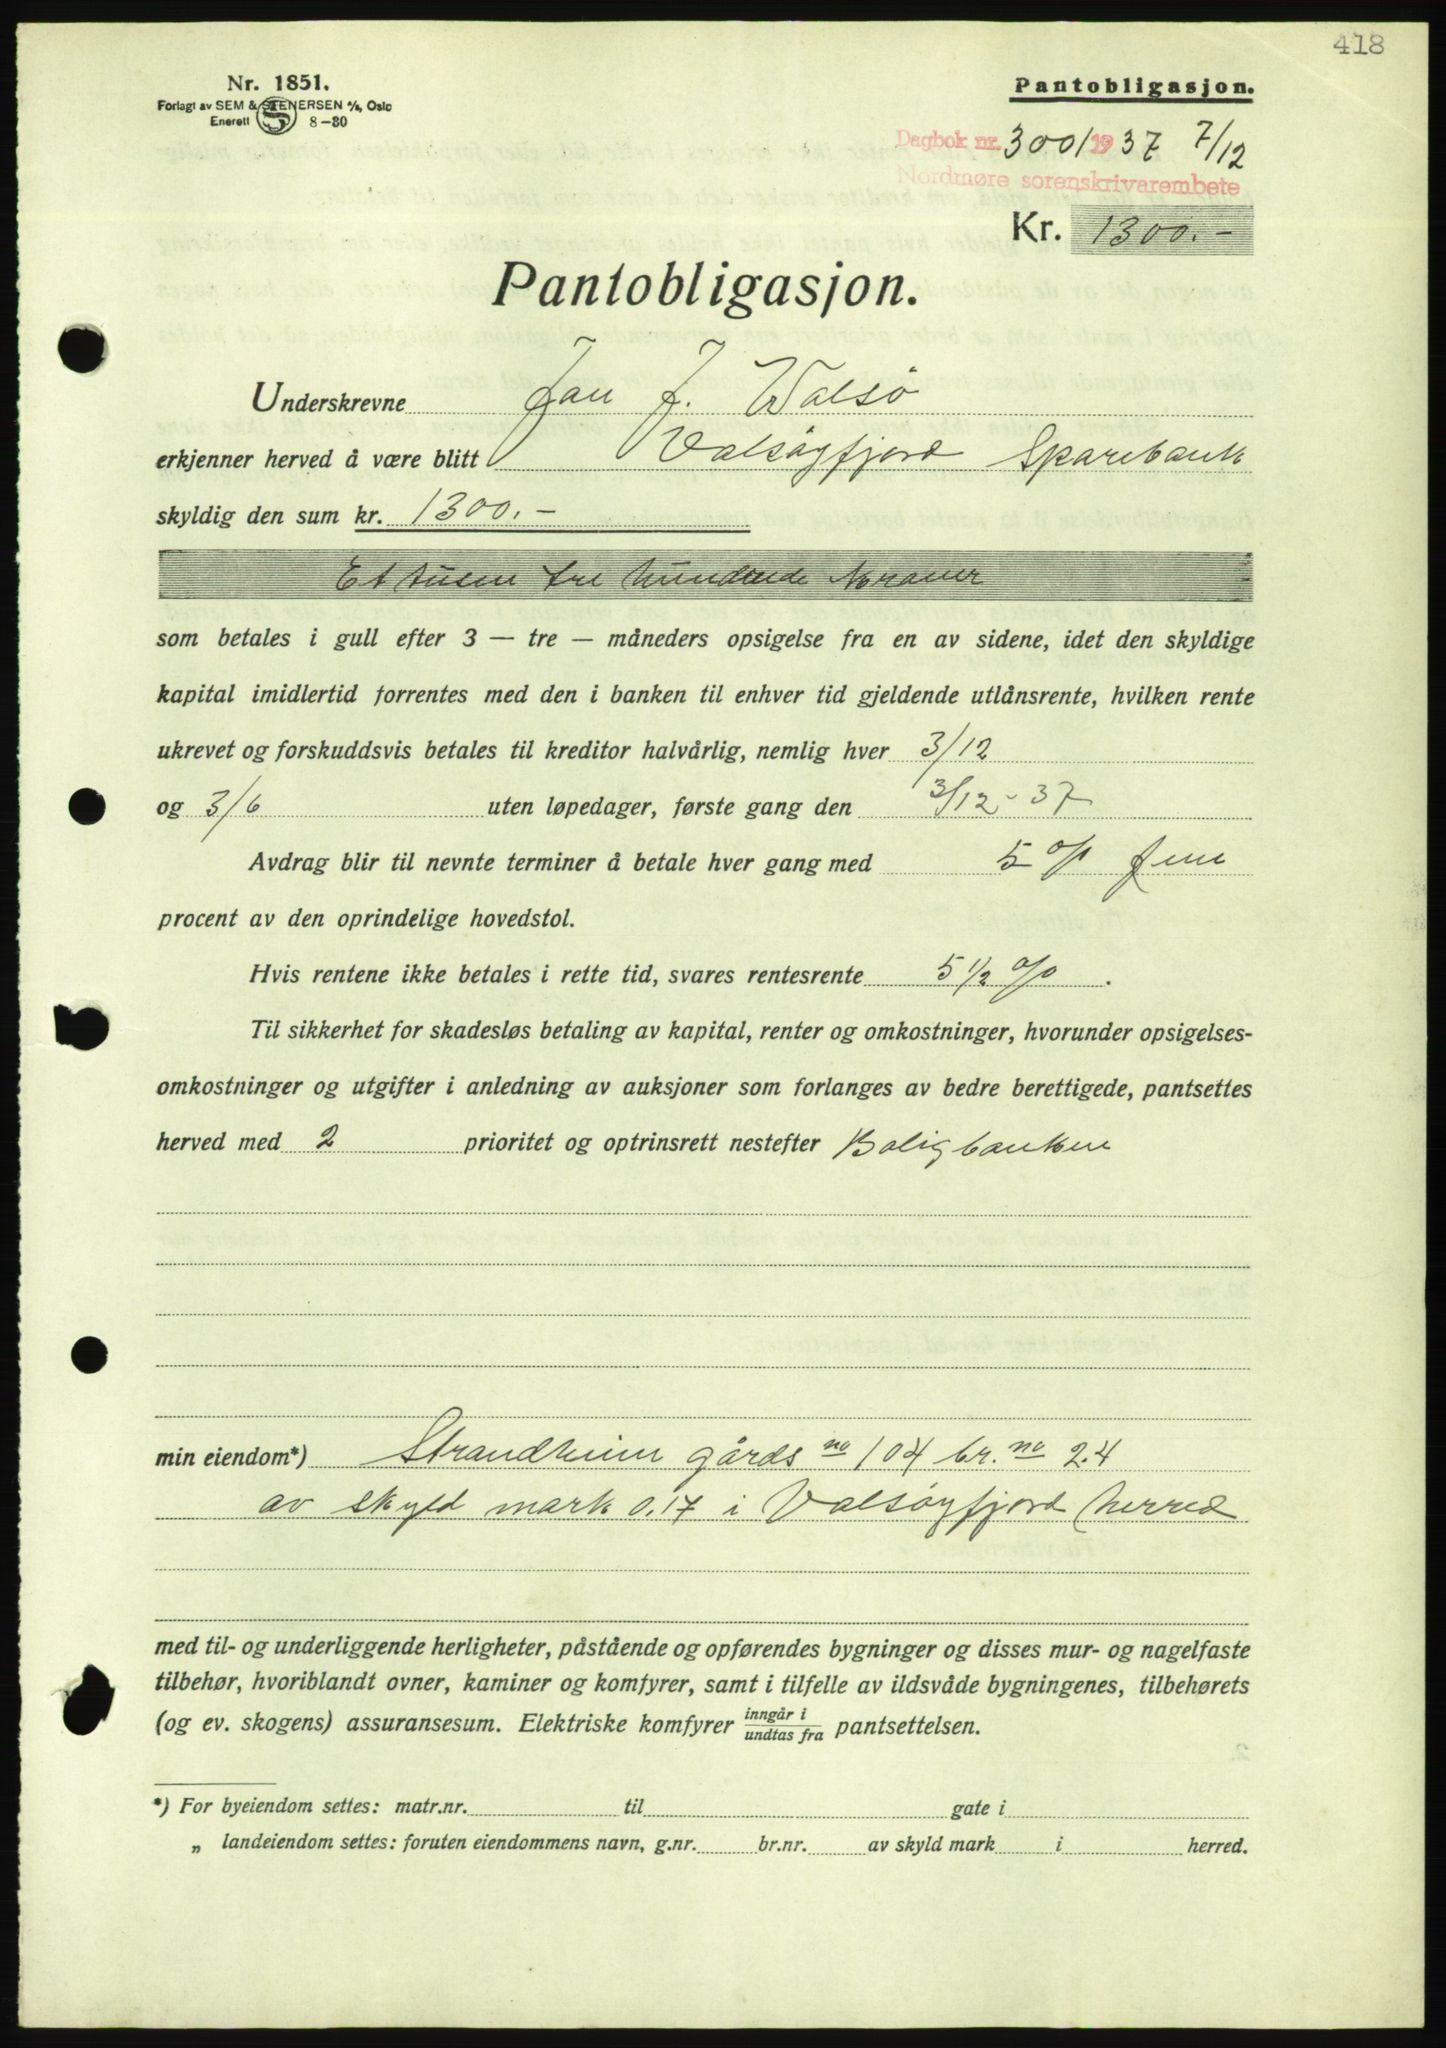 418
Nr. 1851.
Forlagt av SEM & STENERSEN A/S, Oslo
Enerett S 8-30
Pantobligasjon.
Dagbok nr. 3001 1937 7/12
Nordmøre sorenskrivarembete
Kr. 1300.-
Pantobligasjon.
Underskrevne Jan J. Walsø
erkjenner herved å være blitt Valsøyfjord Sparebank
skyldig den sum kr. 1300.-
Et tusen tre hundrede kroner
som betales i gull efter 3 — tre — måneders opsigelse fra en av sidene, idet den skyldige
kapital imidlertid forrentes med den i banken til enhver tid gjeldende utlånsrente, hvilken rente
ukrevet og forskuddsvis betales til kreditor halvårlig, nemlig hver 3/12
og 3/6 uten løpedager, første gang den 3/12-37
Avdrag blir til nevnte terminer å betale hver gang med 5 % fem
procent av den oprindelige hovedstol.
Hvis rentene ikke betales i rette tid, svares rentesrente 5 1/2 %.
Til sikkerhet for skadesløs betaling av kapital, renter og omkostninger, hvorunder opsigelses-
omkostninger og utgifter i anledning av auksjoner som forlanges av bedre berettigede, pantsettes
herved med 2 prioritet og optrinsrett nestefter Boligbanken
min eiendom*) Strandheim gårds no 104 br. no 24
av skyld mark 0.17 i Valsøyfjord herred
med til- og underliggende herligheter, påstående og opførendes bygninger og disses mur- og nagelfaste
tilbehør, hvoriblandt ovner, kaminer og komfyrer, samt i tilfelle av ildsvåde bygningenes, tilbehørets
(og ev. skogens) assuransesum. Elektriske komfyrer inngår i / undtas fra pantsettelsen.
*) For byeiendom settes: matr.nr. til gate i
„ landeiendom settes: foruten eiendommens navn, g.nr. br.nr. av skyld mark i herred.